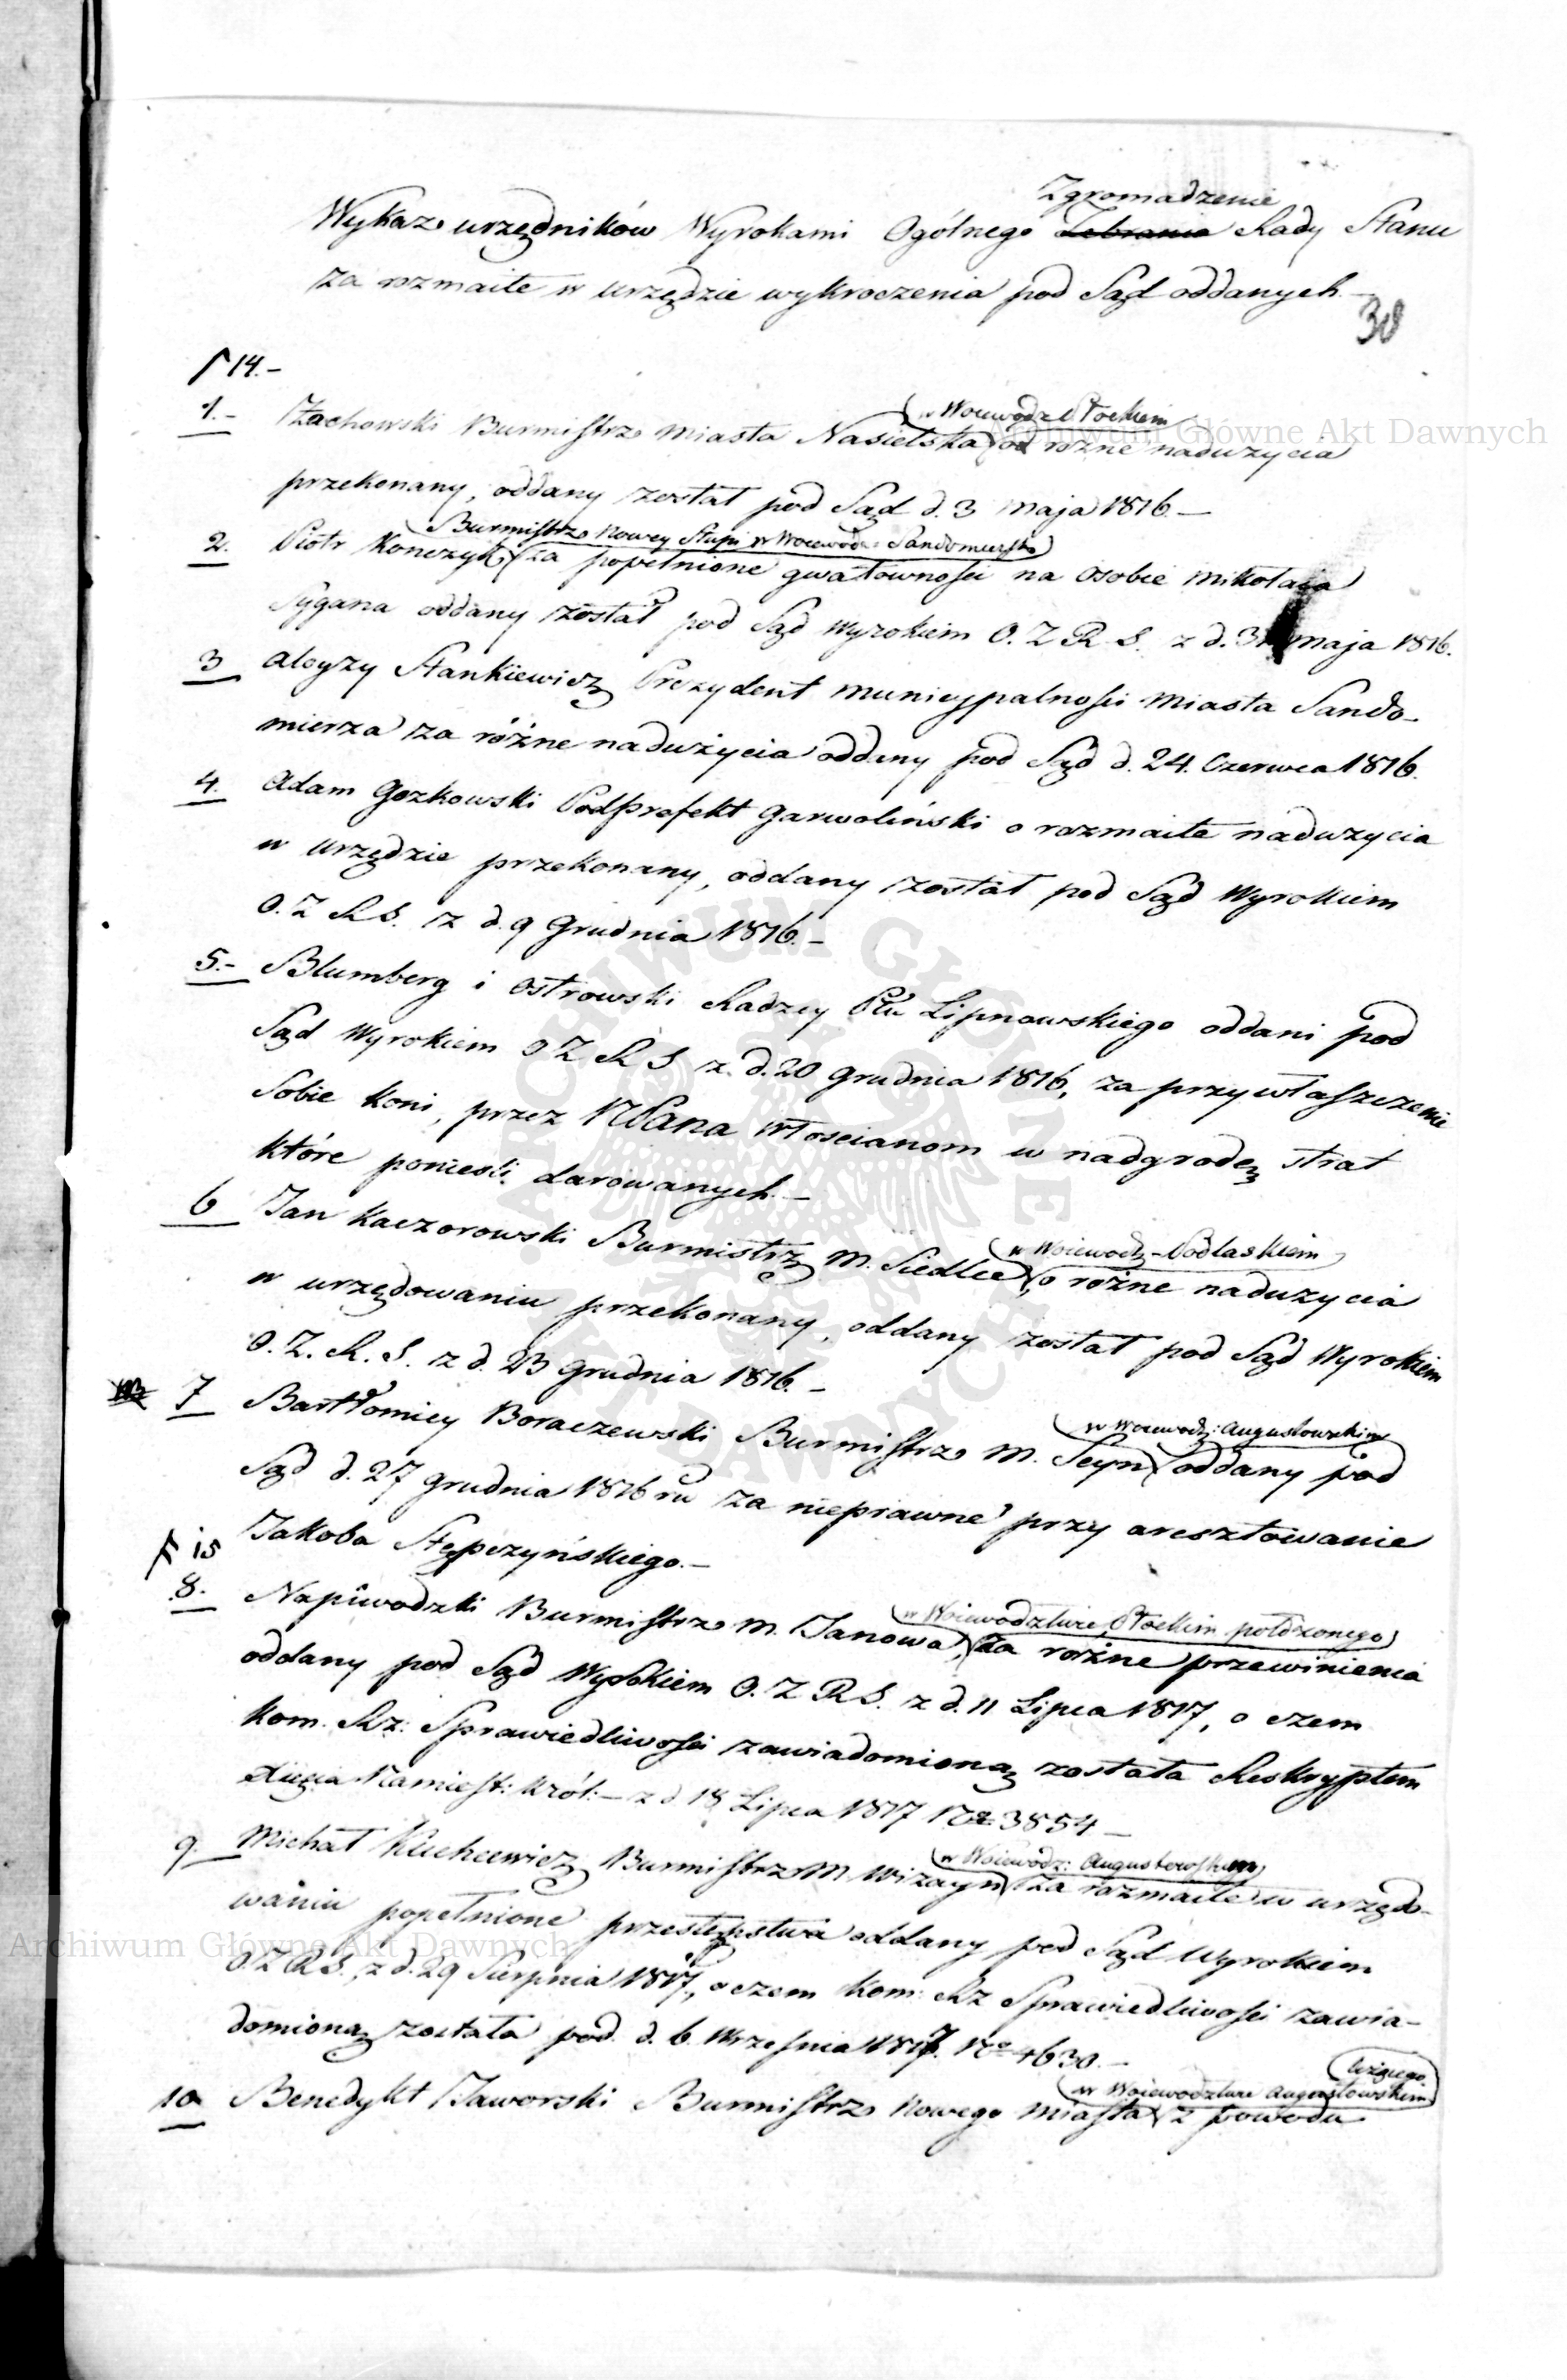 Zgromadzenie
Wykaz urzędników Wyrokami Ogólnego Zebrania Rady Stanu
za rozmaite w urzędzie wykroczenia pod Sąd oddanych.
30
14.-
1.-
w Woiewódz: Płockiem
Żachowski Burmistrz miasta Nasielska o rożne nadużycia
przekonany, oddany został pod Sąd d. 3 Maja 1816.-
Burmistrz Nowey Słupi w Woiewódz: Sandomiersk:
2. Piotr Kończyk za popełnione gwałtowności na osobie Mikołaja
Sygana oddany został pod Sąd Wyrokiem O. Z R S. z d. 31 Maja 1816.
3 Aloyzy Stankiewicz Prezydent Municypalności Miasta Sando-
mierza za różne nadużycia oddany pod Sąd d. 24. Czerwca 1816.
4. Adam Gozkowski Podprefekt Garwoliński o rozmaite nadużycia
w urzędzie przekonany, oddany został pod Sąd Wyrokiem
O. Z R S. z d. 9 Grudnia 1816.-
5.- Blumberg i Ostrowski Radzcy Ptu Lipnowskiego oddani pod
Sąd Wyrokiem O Z R S z d. 20 Grudnia 1816, za przywłaszczenie
Sobie koni, przez NPana Włoscianom w nadgrodę strat
które ponieśli darowanych.-
w Woiewodz- Podlaskiem
6 Jan Kaczorowski Burmistrz M. Siedlce, o rożne nadużycia
w urzędowaniu przekonany, oddany został pod Sąd Wyrokiem
O. Z. R. S. z d. 23 Grudnia 1816.-
w Woiewodz: Augustowskim
7 Bartłomiey Boraczewski Burmistrz M. Seyn oddany pod
Sąd d. 27 Grudnia 1816 ru za nieprawne przy aresztowanie
Jakoba Stępczyńskiego.-
15
w Woiewodztwie Płockim położonego
8. Napiwodzki Burmistrz M. Janowa, za rożne przewinienia
oddany pod Sąd Wyrokiem O. Z R S. z d. 11 Lipca 1817, o czem
Kom. Rz: Sprawiedliwości zawiadomioną została Reskryptem
Xięcia Namiest: Król:- z d 18 Lipca 1817 No 3854-
w Woiewodz: Augustowskim
9. Michał Kuchcewicz Burmistrz M Wizayn za rozmaite w urzędo-
waniu popełnione przestępstwa oddany pod Sąd Wyrokiem
O. Z R S. z d. 29 Sierpnia 1817, o czem Kom: Rz Sprawiedliwości zawia-
domioną została pod. d. 6. Września 1817. No 4630.-
w Woiewodztwie Augustowskim
10 Benedykt Jaworski Burmistrz Nowego Miasta z powodu
Archiwum Główne Akt Dawnych
Archiwum Główne Akt Dawnych
ARCHIWUM GŁÓWNE AKT DAWNYCH